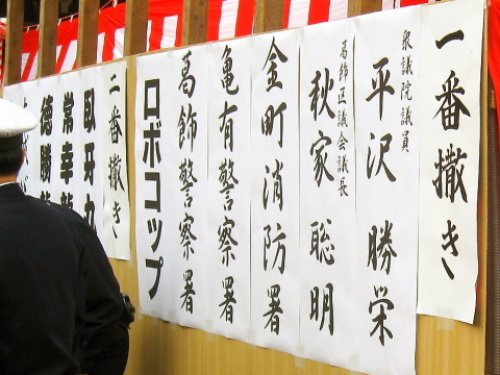 一番撒き
衆議院議員
平沢 勝栄
葛飾区議会議長
秋家 聡明
金町消防署
亀有警察署
葛飾警察署
ロボコップ
二番撒き
臥牙丸
常幸龍
徳勝龍